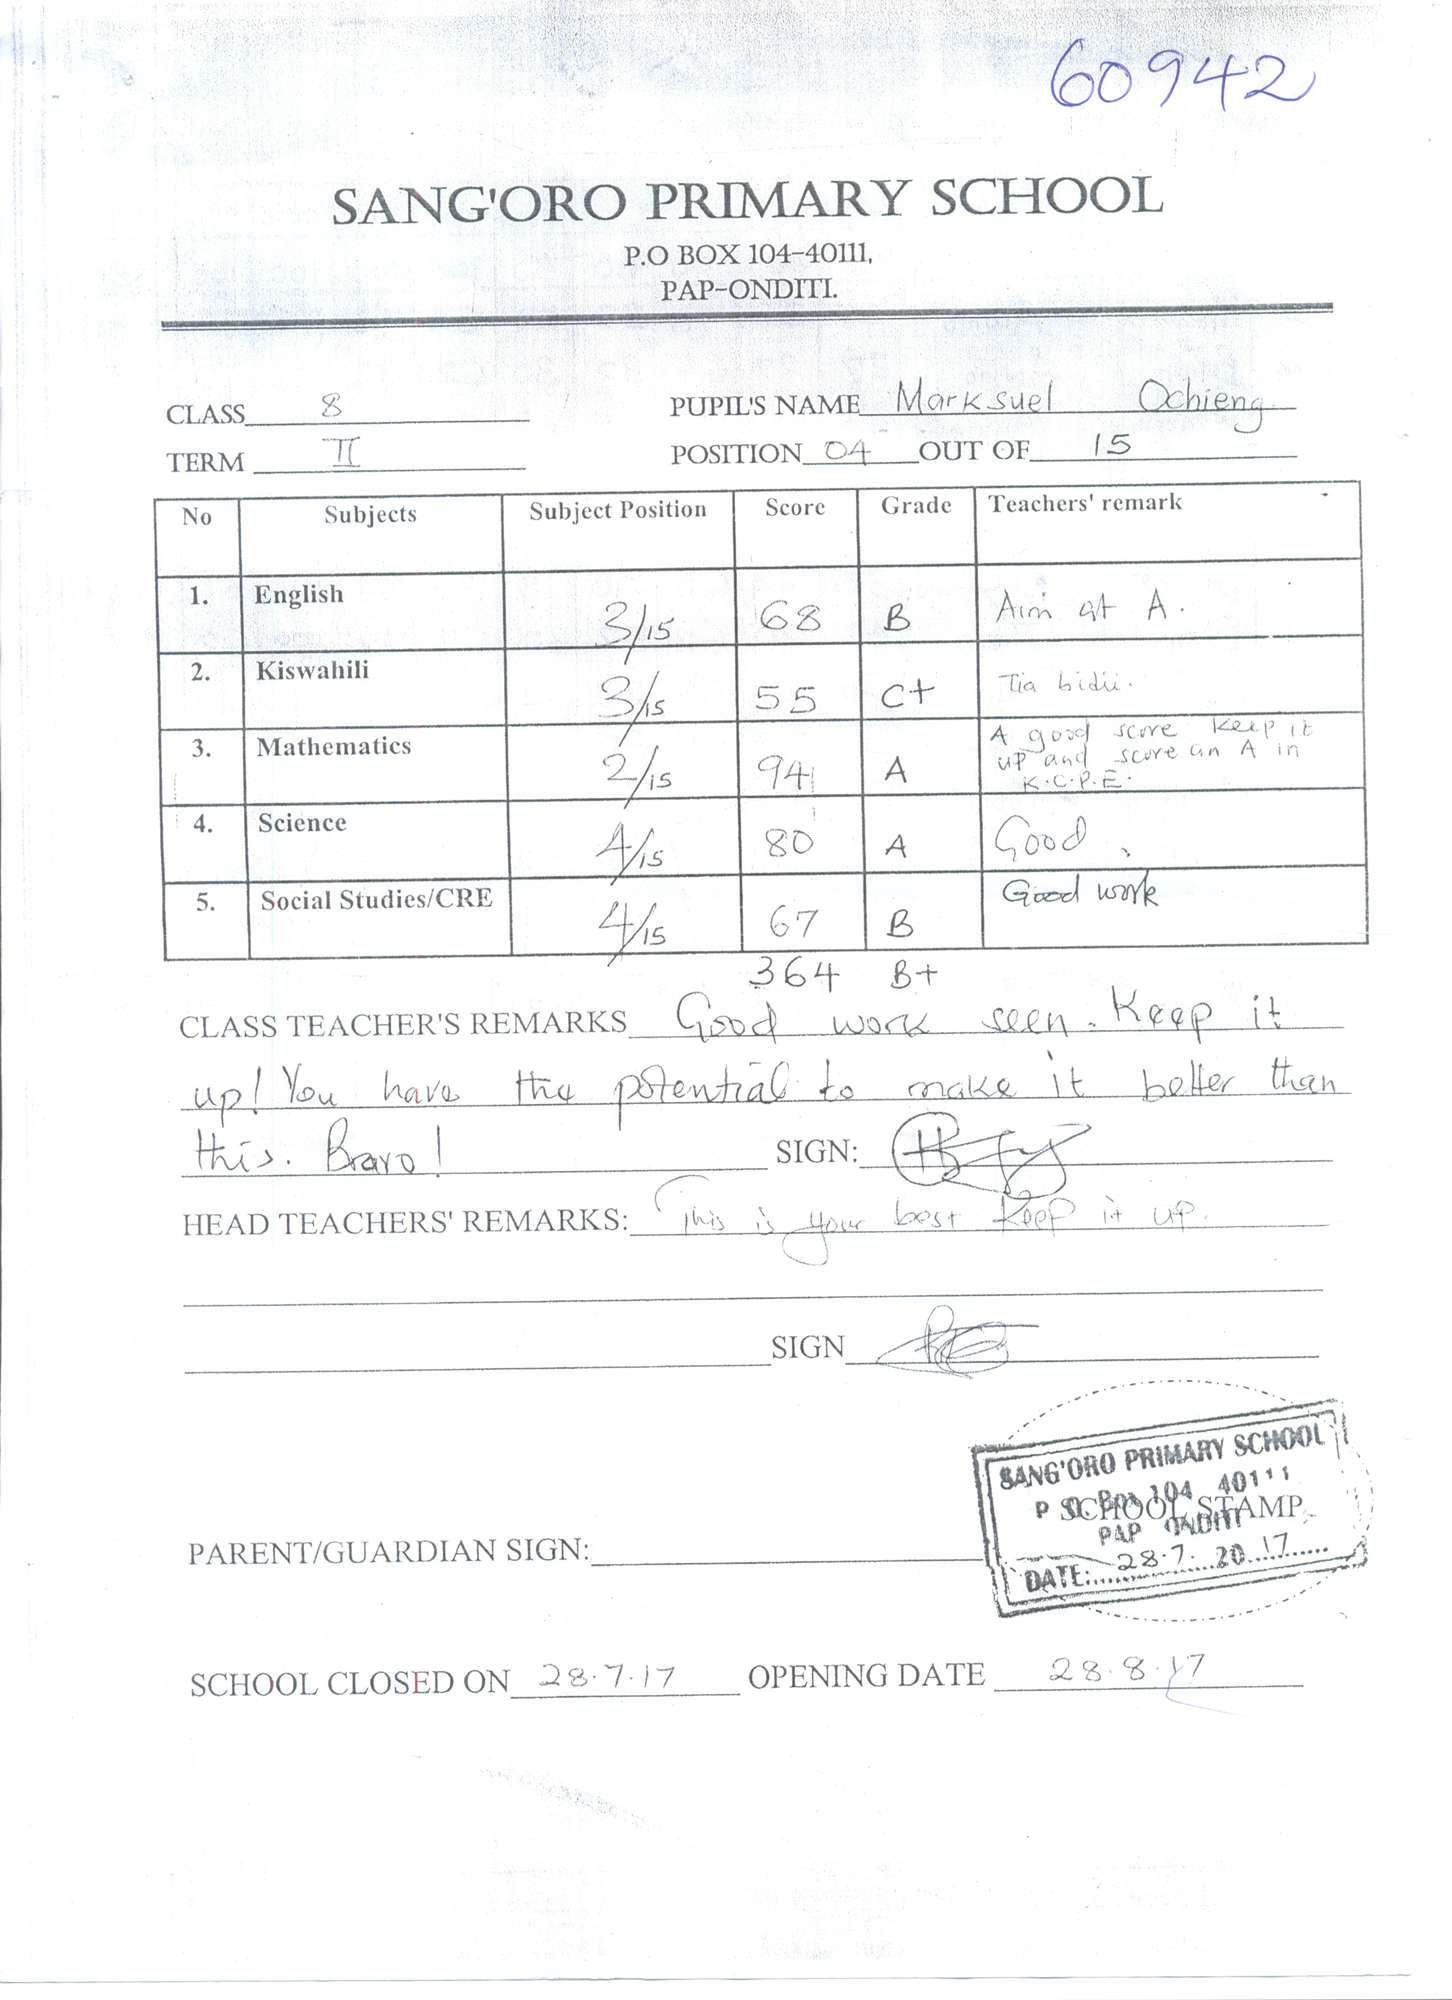 60942
SANG'ORO PRIMARY SCHOOL
P.O BOX 104-40111,
PAP-ONDITI.
CLASS 8 PUPIL'S NAME Marksuel Ochieng
TERM II POSITION 04 OUT OF 15
No Subjects Subject Position Score Grade Teachers' remark
1. English 3/15 68 B Aim at A.
2. Kiswahili 3/15 55 C+ Tia bidii.
3. Mathematics 2/15 94 A A good score keep it
up and score an A in
K.C.P.E.
4. Science 4/15 80 A Good
5. Social Studies/CRE 4/15 67 B Good work
364 B+
CLASS TEACHER'S REMARKS Good work seen. Keep it
up! You have the potential to make it better than
this. Bravo! SIGN:
HEAD TEACHERS' REMARKS: This is your best keep it up.
SIGN
SANG'ORO PRIMARY SCHOOL
P O Box 104 40111
SCHOOL STAMP
PAP ONDITI
DATE: 28.7. 2017
PARENT/GUARDIAN SIGN:
SCHOOL CLOSED ON 28.7.17 OPENING DATE 28.8.17